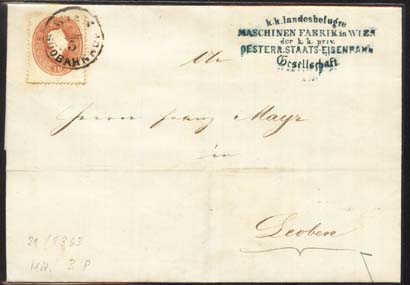 WIEN
5
SÜDBAHNHOF
k.k. landesbefugte
MASCHINEN FABRIK in WIEN
der k. k. priv.
OESTERR. STAATS-EISENBAHN
Gesellschaft.
Herrn Franz Mayr
in
Leoben